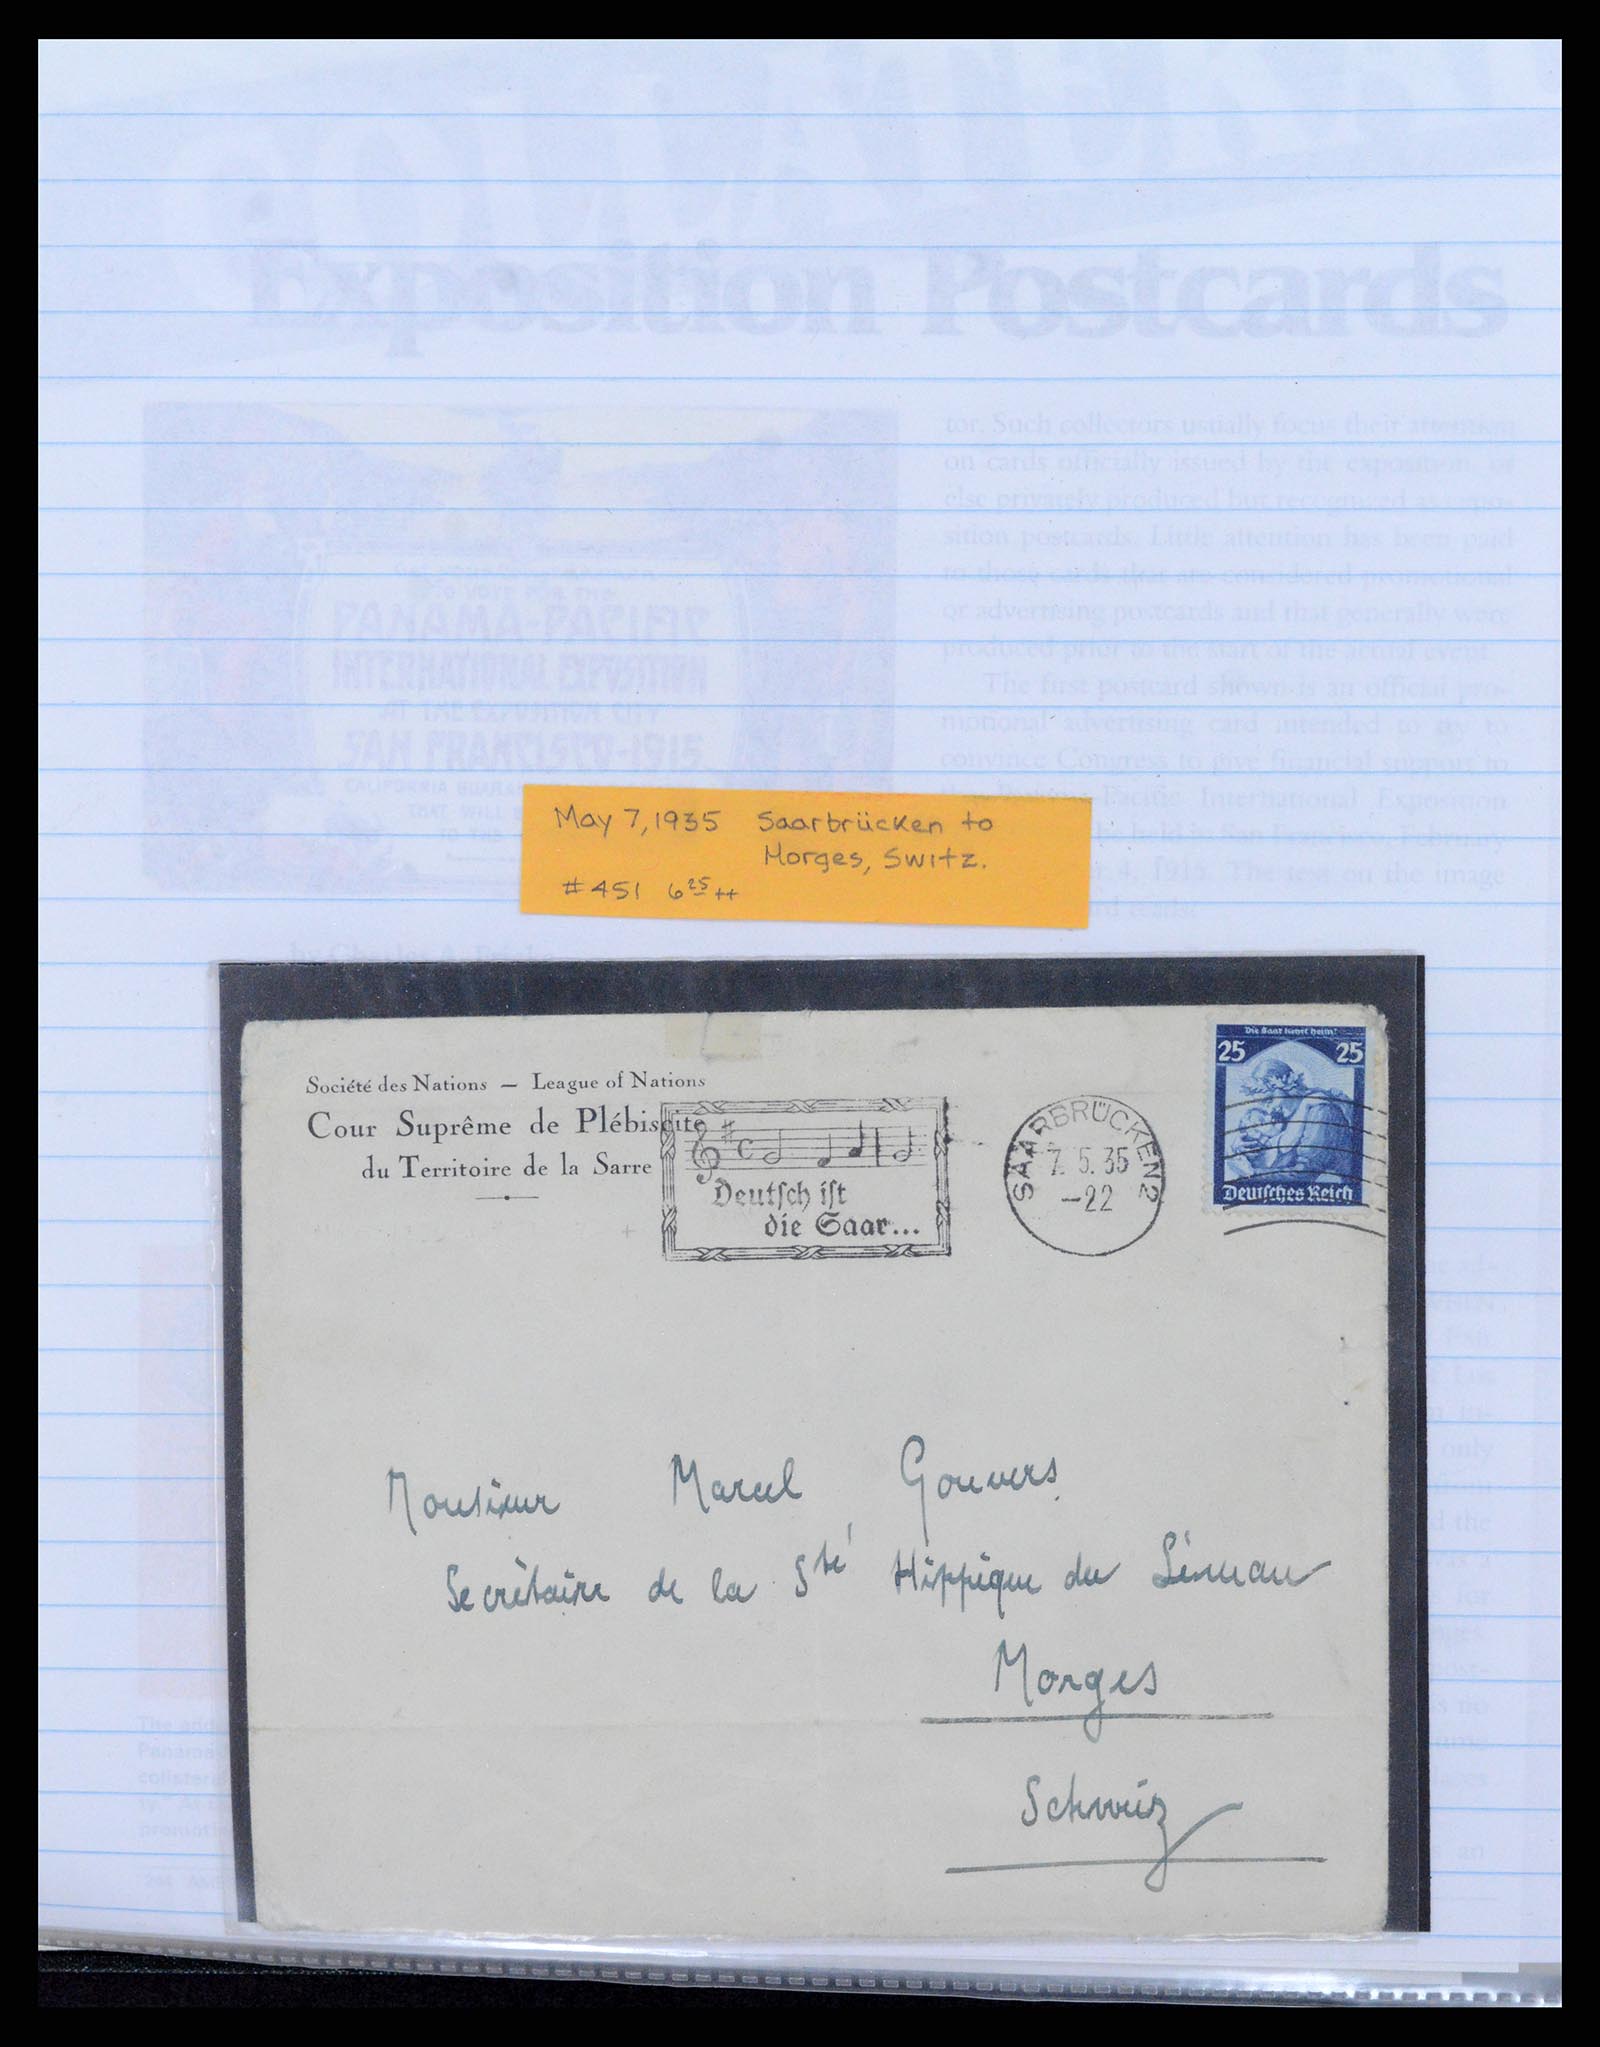 Exposition Postcards
tor. Such collectors usually focus their attention
on cards officially issued by the exposition, or
else privately produced but recognized as expo-
sition postcards. Little attention has been paid
to those cards that are considered promotional
or advertising postcards and that generally were
produced prior to the start of the actual event.
The first postcard shown is an official pro-
motional advertising card intended to try to
convince Congress to give financial support to
Pacific International Exposition
be held in San Francisco, February
4, 1915. The text on the image
reads:
TO VOTE FOR THE
PANAMA-PACIFIC
INTERNATIONAL EXPOSITION
AT THE EXPOSITION CITY
SAN FRANCISCO-1915
CALIFORNIA
THAT WILL
TO THE
by Charles A.
May 7, 1935 Saarbrücken to
Morges, Switz.
#451 6 25 ++
Société des Nations — League of Nations
Cour Suprême de Plébiscite
du Territoire de la Sarre
Deutsch ist
die Saar...
SAARBRÜCKEN 2
7. 5. 35
-22
Die Saar kehrt heim!
25 25
Deutsches Reich
Monsieur Marcel Gouvers
Secrétaire de la Sté Hippique du Léman
Morges
Schweiz
only
the
for
The
Panama
promoti
an